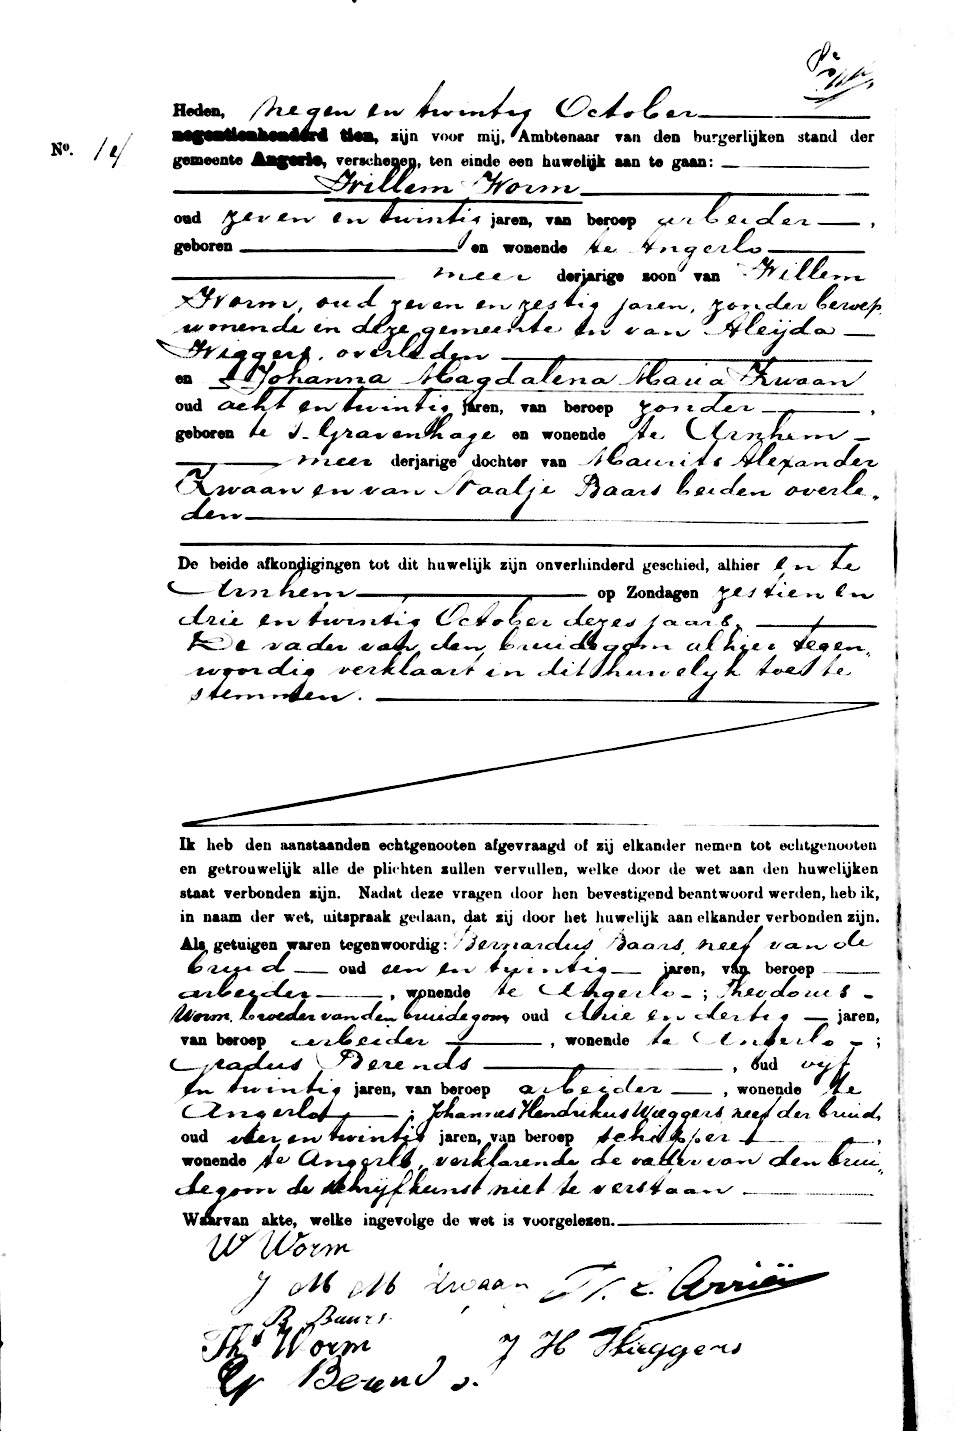 Heden, negen en twintig October
negentienhonderd tien, zijn voor mij, Ambtenaar van den burgerlijken stand der
No. 14
gemeente Angerlo, verschenen, ten einde een huwelijk aan te gaan:
Willem Worm
oud zeven en twintig jaren, van beroep arbeider,
geboren en wonende te Angerlo
meer derjarige zoon van Willem
Worm, oud zeven en zestig jaren, zonder beroep,
wonende in deze gemeente en van Aleijda
Wiggers, overleden
en Johanna Magdalena Maria Zwaan
oud acht en twintig jaren, van beroep zonder,
geboren te 's-Gravenhage en wonende te Arnhem
meer derjarige dochter van Maurits Alexander
Zwaan en van Naatje Baars beiden overle„
den
De beide afkondigingen tot dit huwelijk zijn onverhinderd geschied, alhier en te
Arnhem op Zondagen zestien en
drie en twintig October dezes jaars.
De vader van den bruidegom alhier tegen„
woordig verklaart in dit huwelijk toe te
stemmen.
Ik heb den aanstaanden echtgenooten afgevraagd of zij elkander nemen tot echtgenooten
en getrouwelijk alle de plichten zullen vervullen, welke door de wet aan den huwelijken
staat verbonden zijn. Nadat deze vragen door hen bevestigend beantwoord werden, heb ik,
in naam der wet, uitspraak gedaan, dat zij door het huwelijk aan elkander verbonden zijn.
Als getuigen waren tegenwoordig: Bernardus Baars, neef van de
bruid oud een en twintig jaren, van beroep
arbeider, wonende te Angerlo; Theodorus
Worm, broeder van den bruidegom, oud drie en dertig jaren,
van beroep arbeider, wonende te Angerlo;
Gradus Berends, oud vijf
en twintig jaren, van beroep arbeider, wonende te
Angerlo; Johannes Hendrikus Wieggers neef der bruid,
oud vier en twintig jaren, van beroep schipper,
wonende te Angerlo, verklarende de vader van den brui„
degom de schrijfkunst niet te verstaan
Waarvan akte, welke ingevolge de wet is voorgelezen.
W Worm
J M M Zwaan
B Baars.
Ths Worm
J H Wieggers
G Berends.